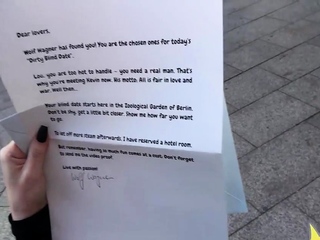 Dear lovers,
Wolf Wagner has found you! You are the chosen ones for today's
"Dirty Blind Date".
Lou, you are too hot to handle - you need a real man. That's
why you're meeting Kevin now. His motto: All is fair in love and
war. Well then...
Your blind date starts here in the Zoological Garden of Berlin.
Don't be shy, get a little bit closer. Show me how far you want
to go.
To let off more steam afterwards, I have reserved a hotel room.
But remember: having so much fun comes at a cost. Don't forget
to send me the video proof.
Live with passion!
Wolf Wagner